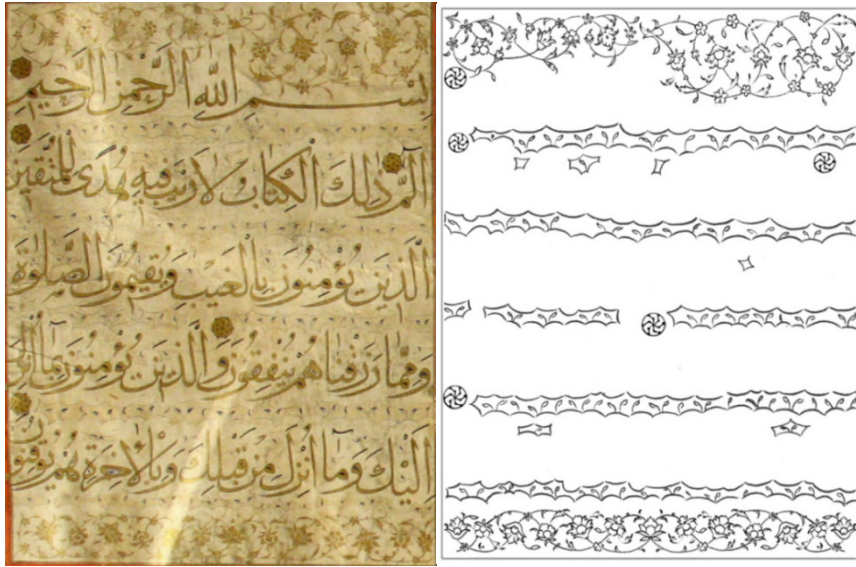 بِسْمِ اللّٰهِ الرَّحْمٰنِ الرَّحِيمِ
الٓمّٓ ذٰلِكَ الْكِتَابُ لَا رَيْبَ فِيهِ هُدًى لِلْمُتَّقِينَ
الَّذِينَ يُؤْمِنُونَ بِالْغَيْبِ وَيُقِيمُونَ الصَّلٰوةَ
وَمِمَّا رَزَقْنَاهُمْ يُنْفِقُونَ وَالَّذِينَ يُؤْمِنُونَ بِمَا أُنْزِلَ
إِلَيْكَ وَمَآ أُنْزِلَ مِنْ قَبْلِكَ وَبِالْاٰخِرَةِ هُمْ يُوقِنُونَ